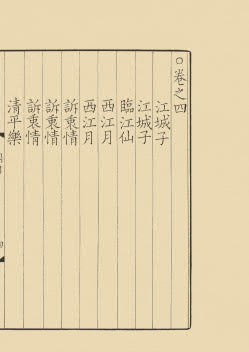 ○卷之四
江城子
江城子
臨江仙
西江月
西江月
訴衷情
訴衷情
訴衷情
清平樂